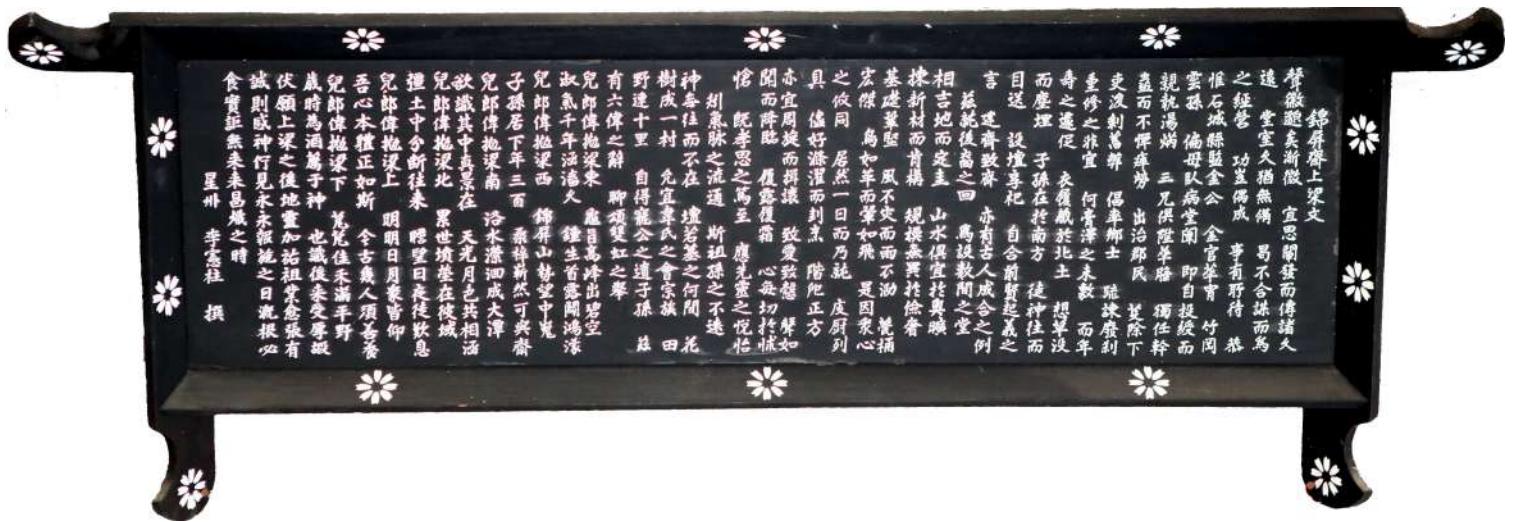 錦屏齋上梁文
聲徽邈矣漸微 宜思闡發而傳諸久
遠 堂室久猶無備 易不合謀而爲
之經營 功豈偶成 事有所待 恭
惟石城縣監金公 金官華胄 竹岡
雲孫 偏母臥病堂闈 即自投綬而
親執湯炳 三兄俱陞華膴 獨任幹
蠱而不憚瘁勞 出治郡民 荒除下
吏波剝舊鄕 倡率鄕士 疏諫廢刹
重修之非宜 何膏澤之未敷 而年
壽之遽促 衣履藏於北土 想草沒
而塵埋 子孫在於南方 徒神往而
目送 設壇享祀 自合前賢起義之
言 建齋致齊 亦有古人成合之例
茲託後裔之回 爲設數間之堂
相吉地而定圭 山水俱宜於奧曠
揀新材而肯構 規模無異於儉奢
基礎鞏堅 風不突而雨不泐 甍桷
宏傑 鳥如革而翬如飛 是因衆心
之攸同 居然一日而乃託 庋廚列
具 儘好滌濯而刲烹 階戺正方
亦宜周旋而揖讓 致愛致慤 髣如
聞而降臨 履露履霜 心每切於怵
愴 旣孝思之篤至 應先靈之悅怡
矧氣脉之流通 斯祖孫之不遠
神每往而不在 壇若墓之何間 花
樹成一村 允宜韋氏之會宗族 田
野連十里 自得龐公之遺子孫 玆
有六偉之辭 聊頌雙虹之擧
兒郎偉抛梁東 鰲首高峰出碧空
淑氣千年涵滀久 鍾生首露闢鴻濛
兒郎偉抛梁西 錦屛山勢望中嵬
子孫居下年三百 桑梓新然可與齋
兒郎偉抛梁南 洛水瀠洄成大潭
欲識其中眞景在 天光月色共相涵
兒郎偉抛梁北 累世墳塋在彼城
疆土中分斷往來 瞪望日夜徒歎息
兒郎偉抛梁上 明明日月衆皆仰
吾心本體正如斯 今古幾人須善養
兒郎偉抛梁下 芃芃佳禾滿平野
歲時爲酒薦于神 也識後來受厚嘏
伏願上梁之後地靈加祐祖業愈張有
誠則感神行見永永報祀之日漑根必
食實亟無未來昌熾之時
星州 李憲柱 撰